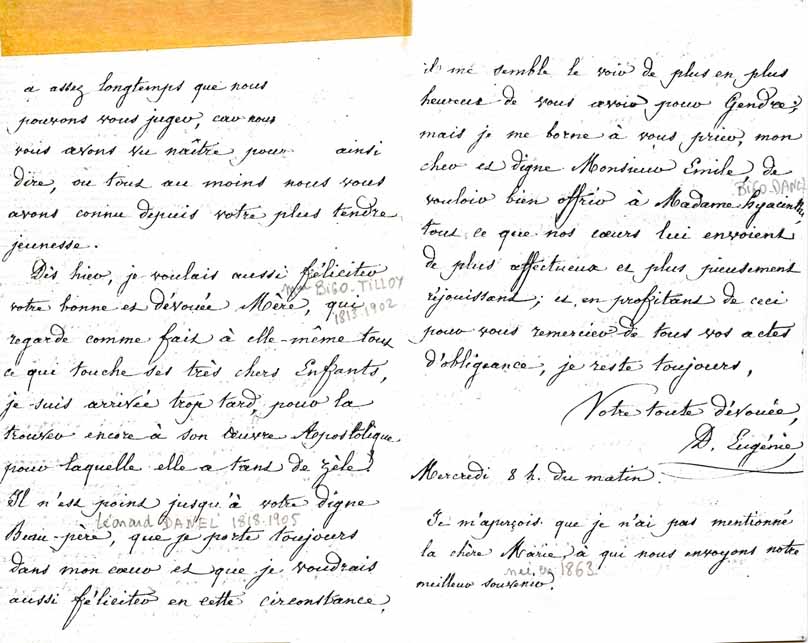 a assez longtemps que nous
pouvons vous juger, car nous
vous avons vu naître pour ainsi
dire, ou tout au moins nous vous
avons connu depuis votre plus tendre
jeunesse.
Dès hier, je voulais aussi féliciter
Mme BIGO-TILLOY
votre bonne et dévouée Mère, qui
1813-1902
regarde comme fait à elle-même tout
ce qui touche ses très chers Enfants,
je suis arrivée trop tard, pour la
trouver encore à son Œuvre Apostolique
pour laquelle elle a tant de zèle!
Il n'est point jusqu'à votre digne
Léonard DANEL 1818-1905
Beau-père, que je porte toujours
dans mon cœur et que je voudrais
aussi féliciter en cette circonstance,
il me semble le voir de plus en plus
heureux de vous avoir pour Gendre;
mais je me borne à vous prier, mon
cher et digne Monsieur Emile, de
BIGO-DANEL
vouloir bien offrir à Madame Hyacinthe,
tout ce que nos cœurs lui envoient
de plus affectueux et plus pieusement
réjouissant; et en profitant de ceci
pour vous remercier de tous vos actes
d'obligeance, je reste toujours,
Votre toute dévouée,
D. Eugénie,
Mercredi 8 h. du matin.
Je m'aperçois que je n'ai pas mentionné
la chère Marie, à qui nous envoyons notre
née en 1863
meilleur souvenir.